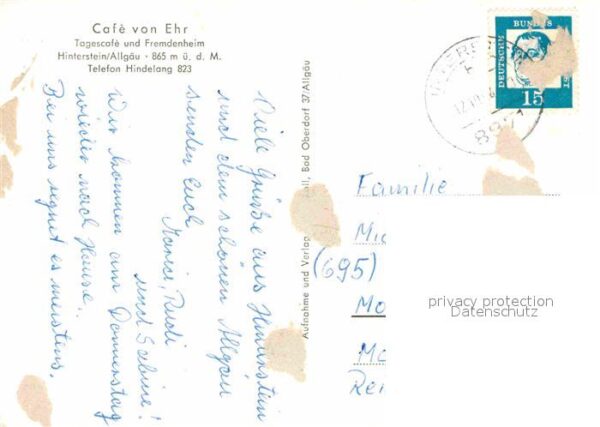 Café von Ehr
Tagescafé und Fremdenheim
Hinterstein/Allgäu - 865 m ü. d. M.
Telefon Hindelang 823
Viele Grüße aus Hinterstein
und dem schönen Allgäu
senden Euch
Rudi
und Sabine!
Wir kommen am Donnerstag
wieder nach Hause.
Bei uns regnet es meistens.
Aufnahme und Verlag Bad Oberdorf 37/Allgäu
DEUTSCHE
BUNDES
POST
15
Familie
(695)
privacy protection
Datenschutz